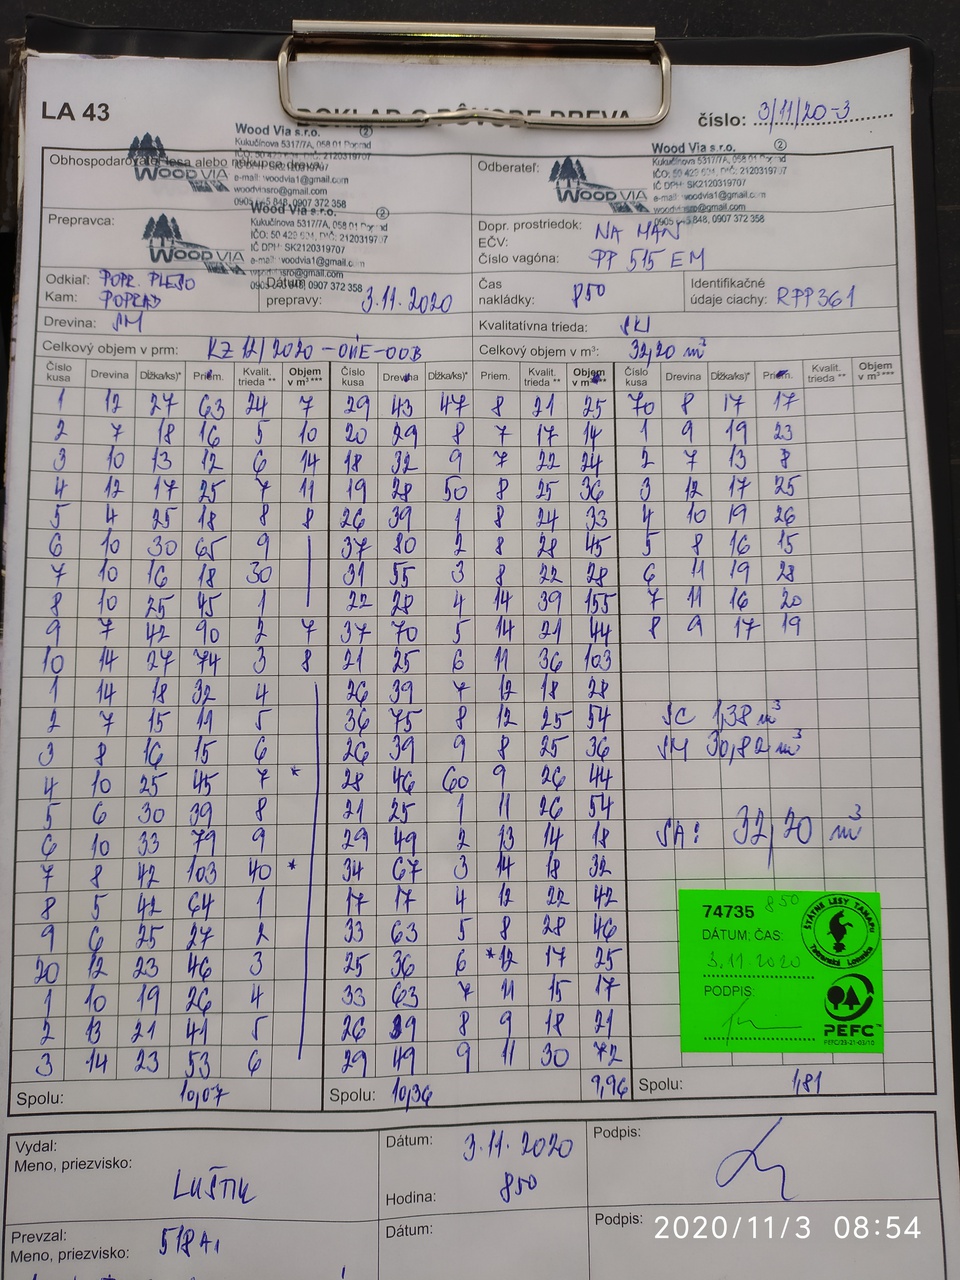 LA 43
DOKLAD O PÔVODE DREVA
číslo: 3/11/20-3
Obhospodarovateľ lesa alebo nákupca dreva:
Wood Via s.r.o. ②
Kukučínova 5317/7A, 058 01 Poprad
IČO: 50 429 CO1, DIČ: 2120319707
IČ DPH: SK2120319707
e-mail: woodvia1@gmail.com
woodviasro@gmail.com
0905 645 848, 0907 372 358
WOOD VIA
Odberateľ:
Wood Via s.r.o. ②
Kukučínova 5317/7A, 058 01 Poprad
IČ DPH: SK2120319707
e-mail: woodvia1@gmail.com
woodviasro@gmail.com
0905 645 848, 0907 372 358
WOOD VIA
Prepravca:
Wood Via s.r.o. ②
Kukučínova 5317/7A, 058 01 Poprad
IČ DPH: SK2120319707
e-mail: woodvia1@gmail.com
woodviasro@gmail.com
0905 645 848, 0907 372 358
WOOD VIA
Dopr. prostriedok: NA MAN
EČV:
Číslo vagóna: PP 515 EM
Odkiaľ: POPR. PLESO
Kam: POPRAD
Dátum prepravy: 3.11.2020
Čas nakládky: 850
Identifikačné údaje ciachy: RPP361
Drevina: SM
Kvalitatívna trieda:
Celkový objem v prm: KZ 12/2020-OIIE-OOB
Celkový objem v m³: 32,20 m³
Číslo kusa Drevina Dĺžka/ks)* Priem. Kvalit. trieda ** Objem v m³*** Číslo kusa Drevina Dĺžka/ks)* Priem. Kvalit. trieda ** Objem v m³*** Číslo kusa Drevina Dĺžka/ks)* Priem. Kvalit. trieda ** Objem v m³***
1 12 27 63 24 7 29 43 47 8 21 25 70 8 17 17
2 7 18 16 5 10 20 29 8 7 17 14 1 9 19 23
3 10 13 12 6 14 18 32 9 7 22 24 2 7 13 8
4 12 17 25 7 11 19 28 50 8 25 36 3 12 17 25
5 4 25 18 8 8 26 39 1 8 24 33 4 10 19 26
6 10 30 65 9 37 80 2 8 28 45 5 8 16 15
7 10 16 18 30 31 55 3 8 22 28 6 11 19 28
8 10 25 45 1 22 28 4 14 39 155 7 11 16 20
9 7 42 90 2 7 37 70 5 14 21 44 8 9 17 19
10 14 27 74 3 8 21 25 6 11 36 103
1 14 18 32 4 26 39 7 12 18 28
2 7 15 11 5 36 75 8 12 25 54 SC 1,38 m³
3 8 16 15 6 26 39 9 8 25 36 SM 30,82 m³
4 10 25 45 7 * 28 46 60 9 26 44
5 6 30 39 8 21 25 1 11 26 54
6 10 33 79 9 29 49 2 13 14 18 SA: 32,20 m³
7 8 42 103 40 * 34 67 3 14 18 32
8 5 42 64 1 17 17 4 12 22 42
9 6 25 27 2 33 63 5 8 28 46
20 12 23 46 3 25 36 6 *12 17 25
1 10 19 26 4 33 63 7 11 15 17
2 13 21 41 5 26 39 8 9 18 21
3 14 23 53 6 29 49 9 11 30 72
Spolu: 10,07 Spolu: 10,36 9,96 Spolu: 1,81
74735 850
DÁTUM; ČAS:
3.11.2020
PODPIS:
ŠTÁTNE LESY TANAPU
Tatranská Lomnica
PEFC™
PEFC/25-21-03/10
Vydal:
Meno, priezvisko: LUŠTIK
Dátum: 3.11.2020
Hodina: 850
Podpis:
Prevzal:
Meno, priezvisko:
Dátum:
Podpis:
2020/11/3 08:54